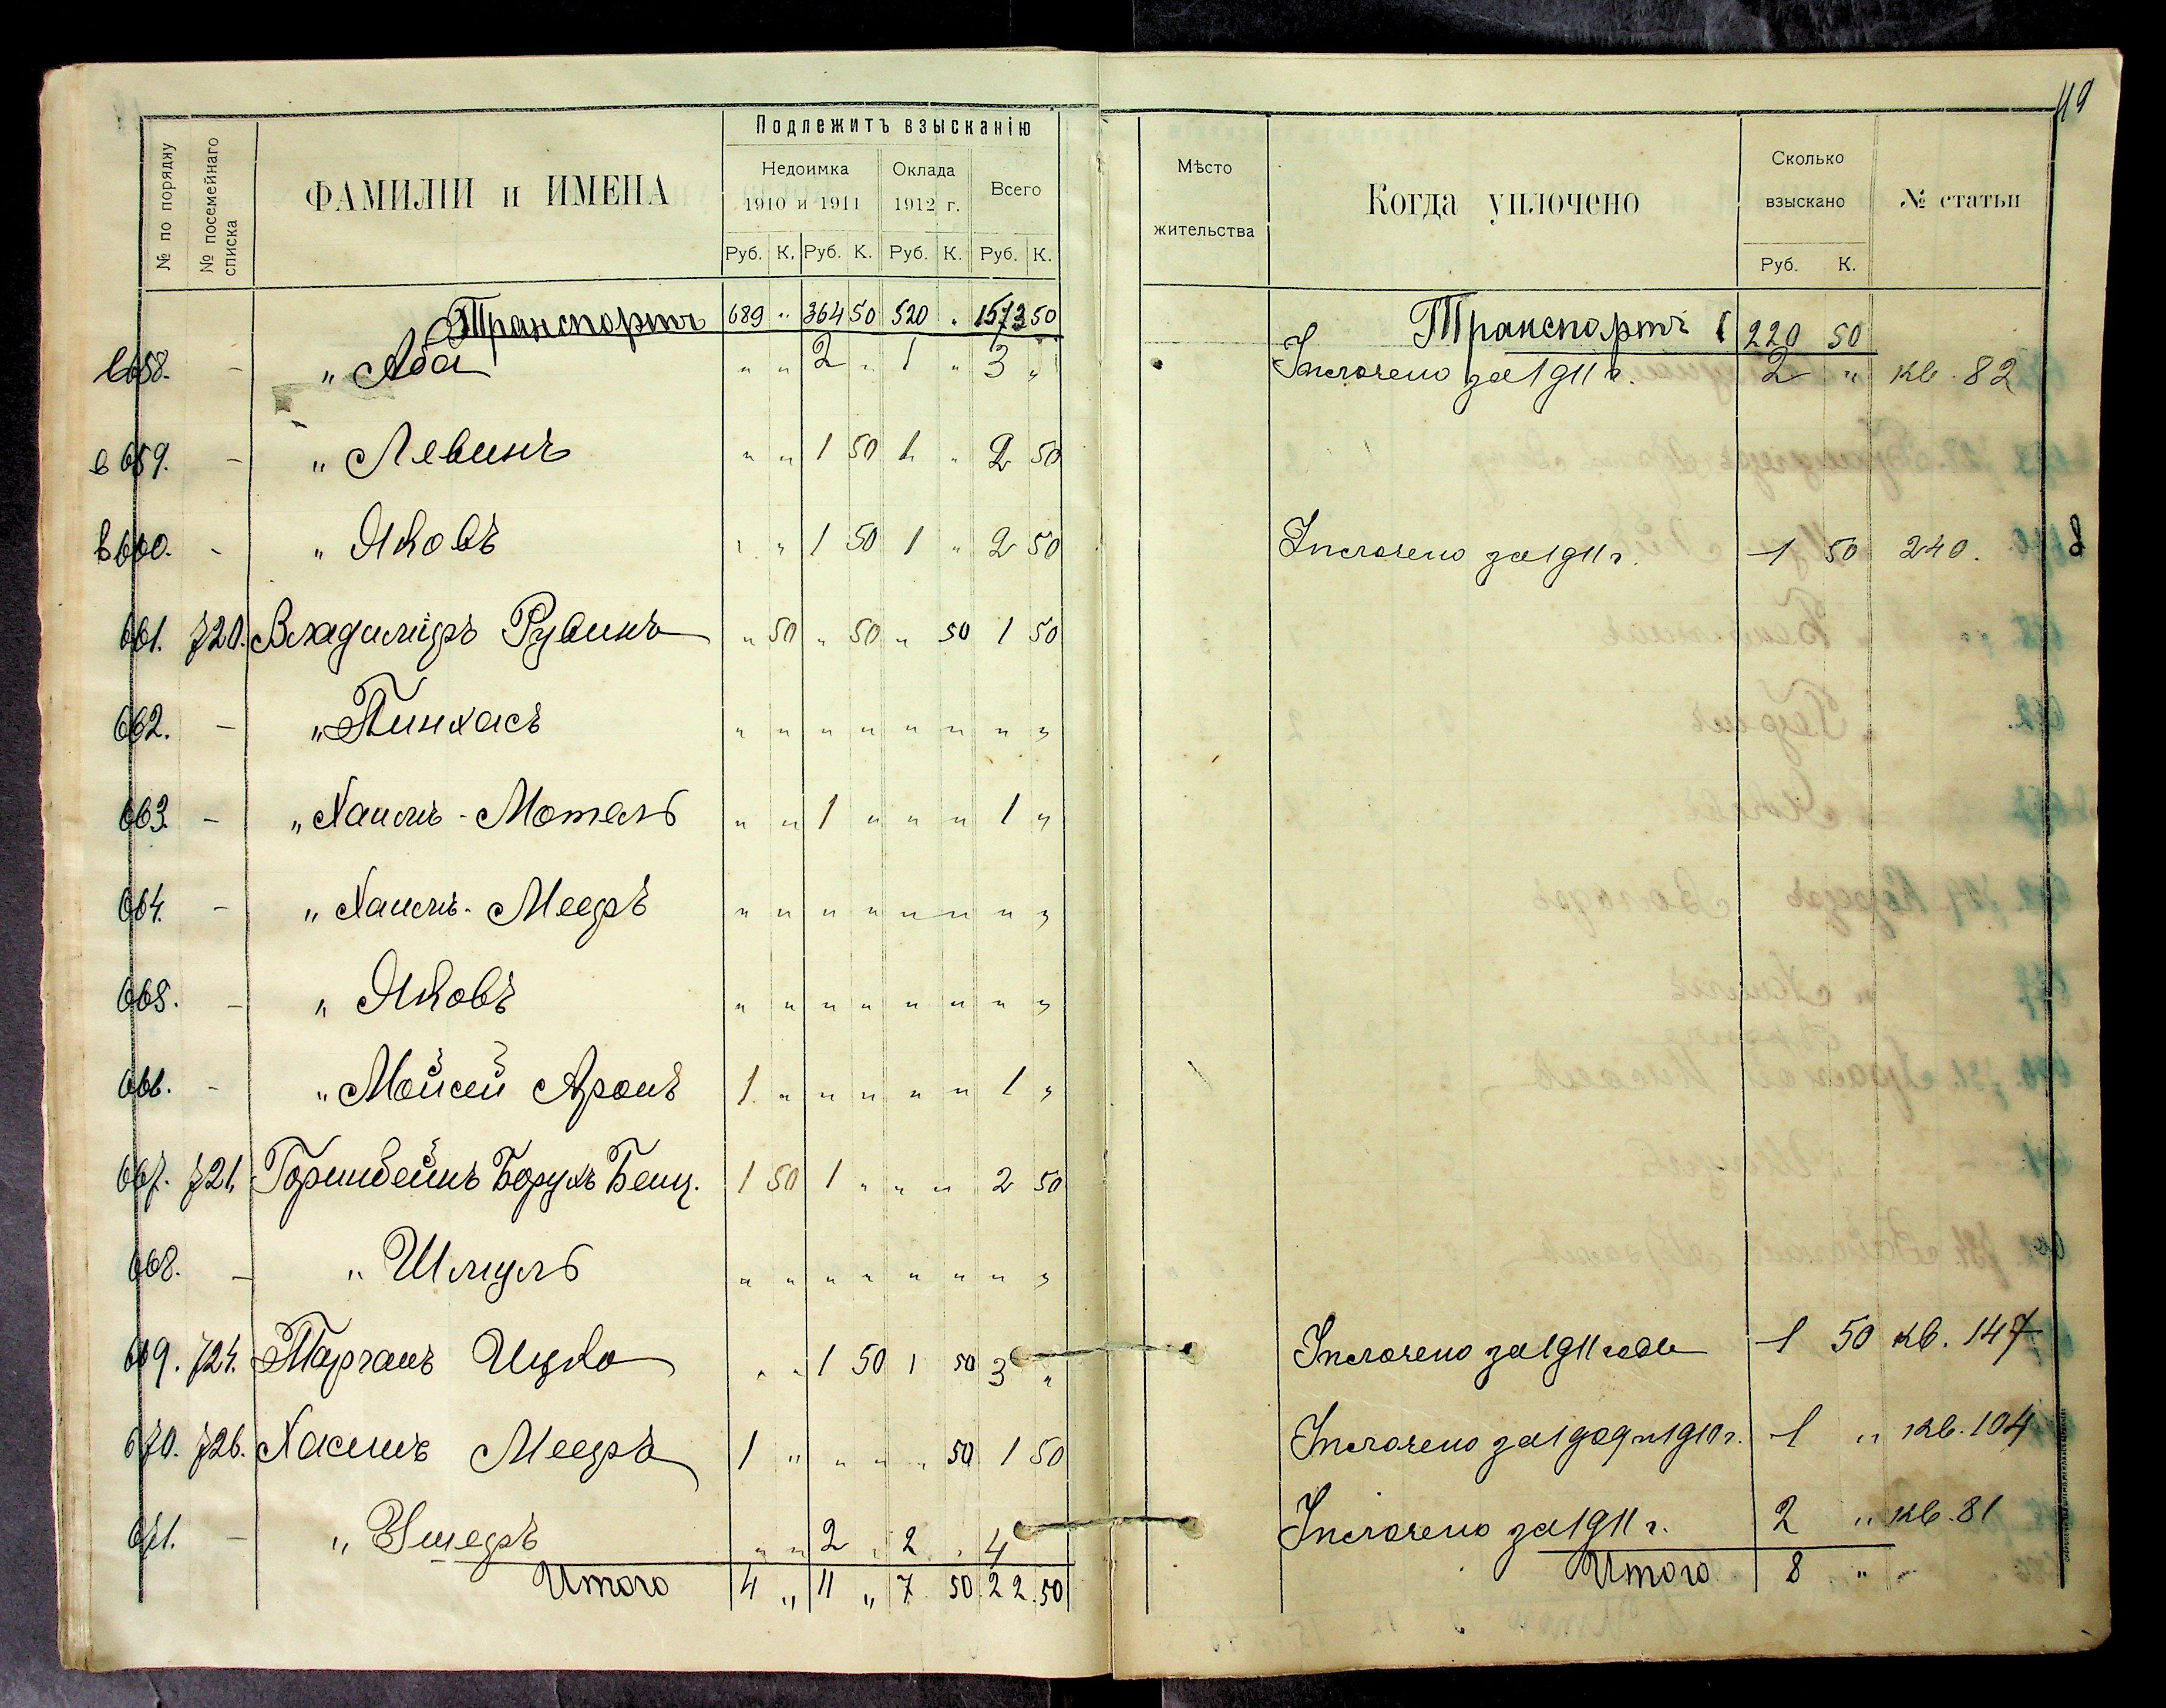 119
Подлежитъ взысканію
№ по порядку
№ посемейнаго списка
ФАМИЛІИ и ИМЕНА
Недоимка
1910 и 1911
Оклада
1912 г.
Всего
Руб. К. Руб. К. Руб. К. Руб. К.
Мѣсто
жительства
Когда уплочено
Сколько
взыскано
Руб. К.
№ статьи
Транспортъ 689 " 364 50 520 " 1573 50 Транспортъ 220 50
658. - " Аба " " 2 " 1 " 3 " за 1911 г. 2 " кв. 82
в 659. - " Левинъ " " 1 50 1 " 2 50
в 660. - " Яковъ " " 1 50 1 " 2 50 за 1911 г. 1 50 240.
661. 720. Владиміръ Рувинъ " 50 " 50 " 50 1 50
662. - " Пинхасъ " " " " " " " "
663. - " Хаимъ-Мотель " " 1 " " " 1 "
664. - " Хаимъ-Мееръ " " " " " " " "
665. - " Яковъ " " " " " " " "
666. - " Мойсей Аронъ 1 " " " " " 1 "
667. 721. Борухъ Бенц. 1 50 1 " " " 2 50
668. - " Шмуль " " " " " " " "
669. 724. Ицко " " 1 50 1 50 3 " за 1911 года 1 50 кв. 147
670. 726. Мееръ 1 " " " " 50 1 50 за 1909 и 1910 г. 1 " кв. 104
671. - " Ушеръ " " 2 " 2 " 4 за 1911 г. 2 " кв. 81
Итого 4 " 11 " 7 50 22.50 Итого 8 " -